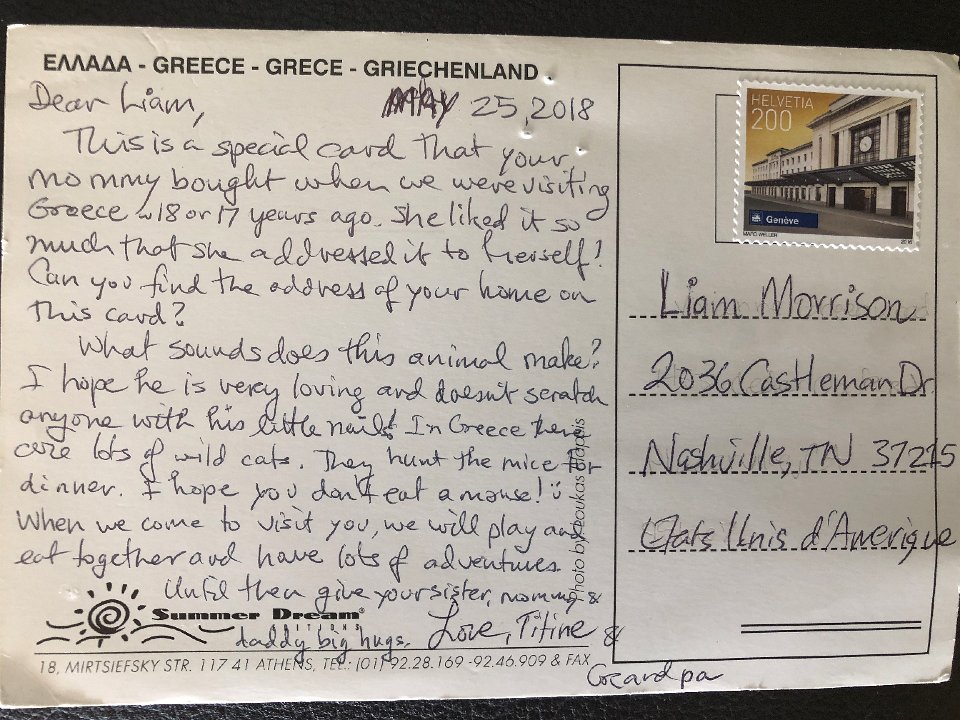 ΕΛΛΑΔΑ - GREECE - GRECE - GRIECHENLAND
Dear Liam, MAY 25, 2018
This is a special card that your
mommy bought when we were visiting
Greece ~18 or 17 years ago. She liked it so
much that she addressed it to herself!
Can you find the address of your home on
this card?
What sounds does this animal make?
I hope he is very loving and doesn't scratch
anyone with his little nails! In Greece there
are lots of wild cats. They hunt the mice for
dinner. I hope you don't eat a mouse!
When we come to visit you, we will play and
eat together and have lots of adventures.
Until then give your sister, mommy &
daddy big hugs. Love, Titine &
Grandpa
Summer Dream®
EDITIONS
18, MIRTSIEFSKY STR. 117 41 ATHENS, TEL.: (01) 92.28.169 -92.46.909 & FAX
Photo by
HELVETIA
200
Genève
MARC WELLER
Liam Morrison
2036 Castleman Dr
Nashville, TN 37215
Etats Unis d'Amerique